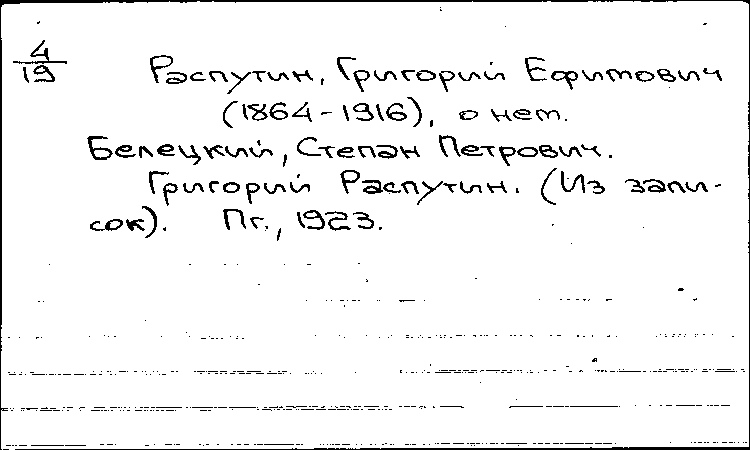 4/19
Распутин, Григорий Ефимович
(1864-1916), о нем.
Белецкий, Степан Петрович.
Григорий Распутин. (Из запи-
сок). Пг., 1923.